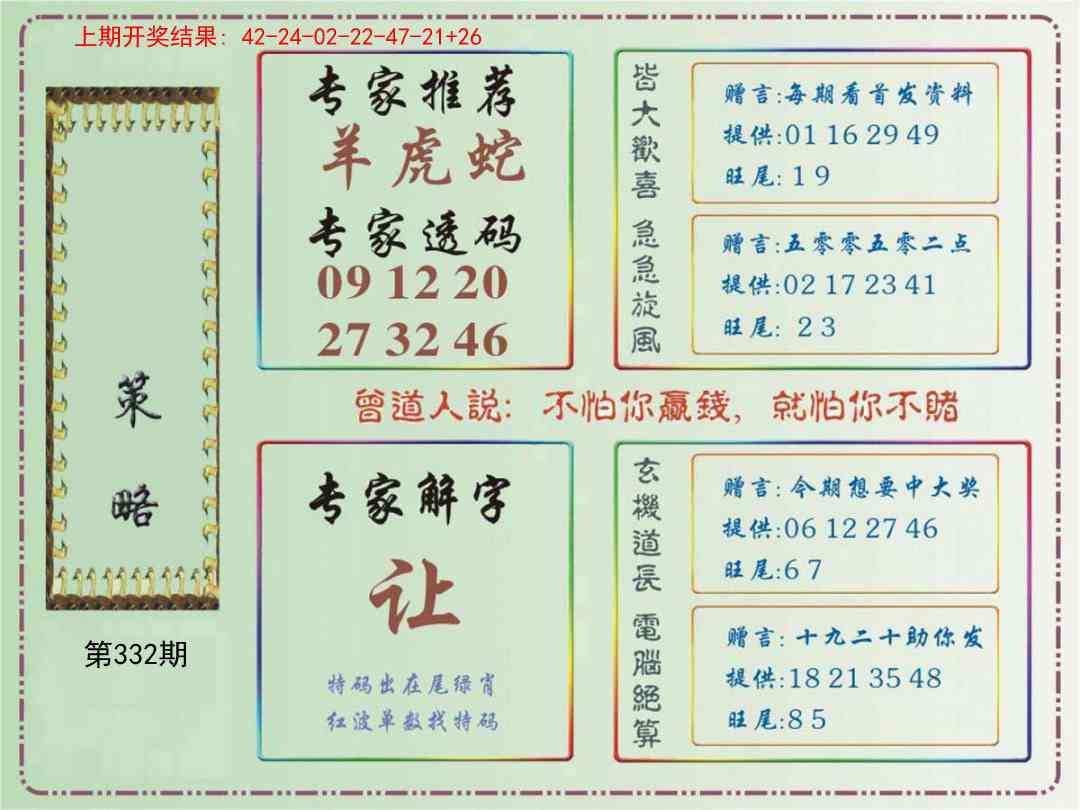 上期开奖结果：42-24-02-22-47-21+26
策略
第332期
专家推荐
羊虎蛇
专家透码
09 12 20
27 32 46
皆大歡喜
赠言:每期看首发资料
提供:01 16 29 49
旺尾:1 9
急急旋風
赠言:五零零五零二点
提供:02 17 23 41
旺尾: 2 3
曾道人説：不怕你贏錢，就怕你不賭
专家解字
让
特码出在尾绿肖
红波单数找特码
玄機道長
赠言:今期想要中大奖
提供:06 12 27 46
旺尾:6 7
電腦絕算
赠言:十九二十助你发
提供:18 21 35 48
旺尾:8 5